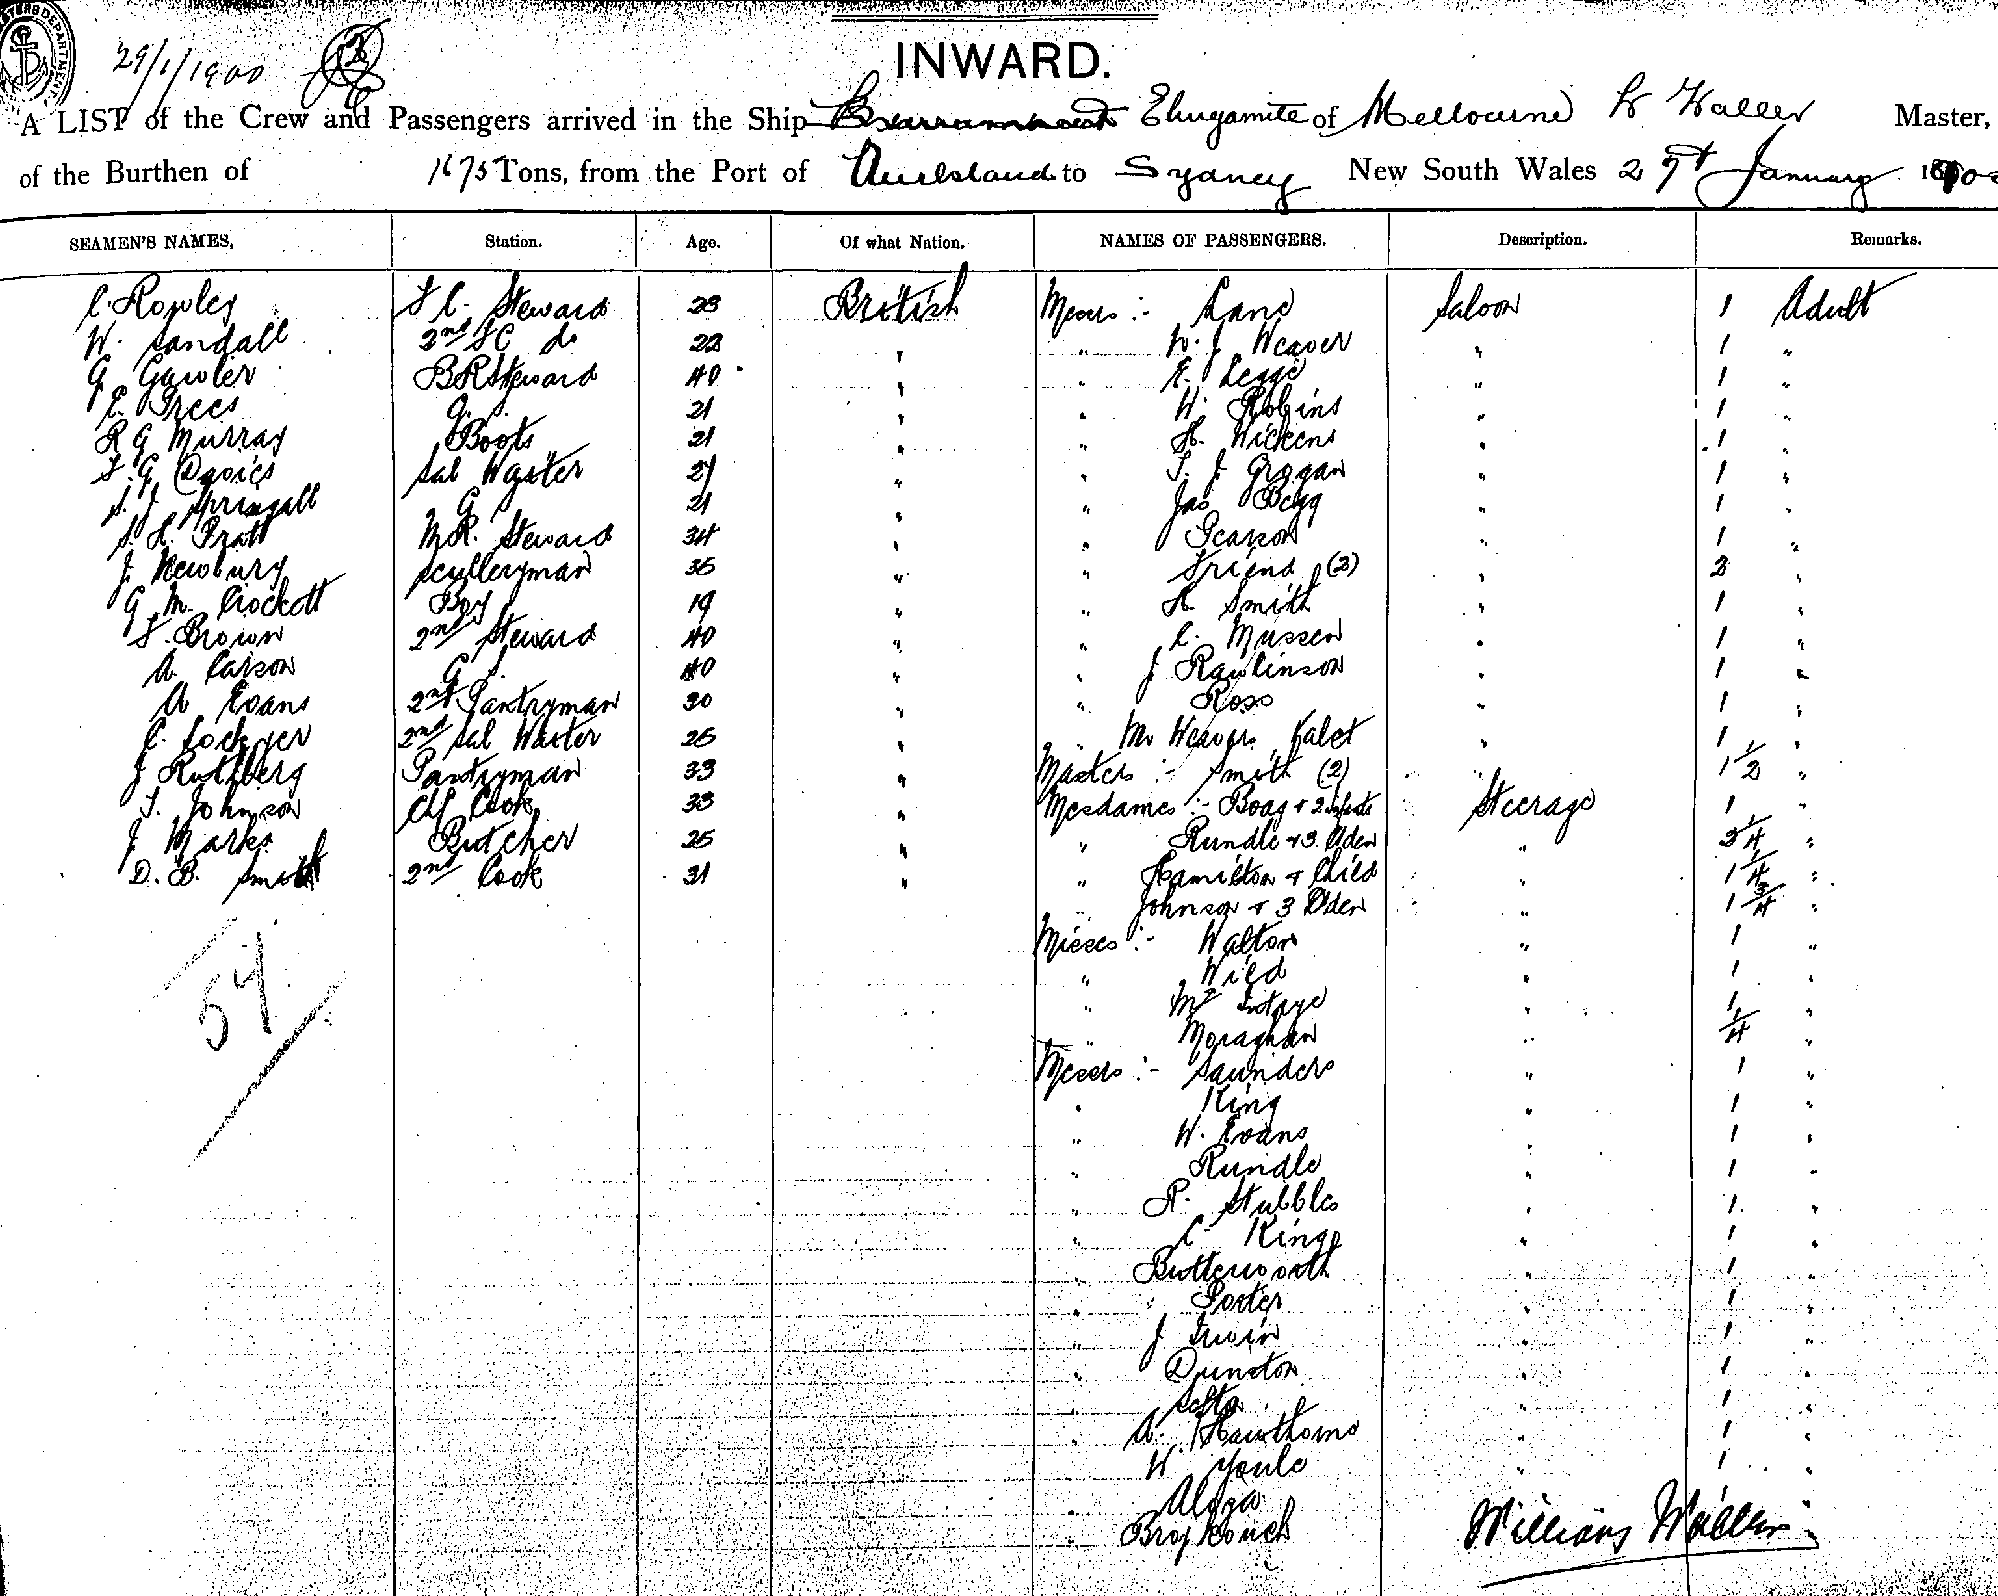 29/1/1900
INWARD.
A LIST of the Crew and Passengers arrived in the Ship Elingamite of Melbourne W Waller Master,
of the Burthen of 1675 Tons, from the Port of Auckland to Sydney New South Wales 29th January 1900
SEAMEN'S NAMES, Station. Age. Of what Nation. NAMES OF PASSENGERS. Description. Remarks.
C. Rowley F C. Steward 23 British Messrs :- Lane Saloon 1 Adult
W. Sandall 2nd SC do 22 " " W. J Weaver " 1 "
G Gawler B R Steward 40 " " E. Legge " 1 "
C. Trees G. S. 21 " " W. Robins " 1 "
R G Murray Boots 21 " " H. Wickens " 1 "
F. G Davies Sal Waiter 27 " " T. J. Grogan " 1 "
S. J Springall G S 21 " " Jas Begg " 1 "
S. H. Pratt M R. Steward 34 " " Pearson " 1 "
J Newbury Sculleryman 35 " " Friend (2) " 2 "
G M. Crockett Boy 19 " " H Smith " 1 "
F. Brown 2nd Steward 40 " " C. Mussen " 1 "
A Carson G S. 40 " " J Rawlinson " 1 "
A Evans 2nd Pantryman 30 " " Ross " 1 "
C. Lockyer 2nd Sal Waiter 25 " " Mr Weavers Valet " 1 "
J Rothberg Pantryman 33 " Masters :- Smith (2) " 1 1/2 "
T. Johnson Chf Cook 33 " Mesdames :- Boag & 2 infants Steerage 1 "
J Marks Butcher 25 " " Rundle & 3 Clden " 3 1/4 "
D. B. Smith 2nd Cook 31 " " Hamilton & Child " 1 1/4 "
" Johnson & 3 Clden " 1 3/4 "
Misses :- Walton " 1 "
" Wild " 1 "
" McIntyre " 1 "
" Moraghan " 1/4 "
Messrs :- Saunders " 1 "
" King " 1 "
" W. Evans " 1 "
" Rundle " 1 "
" R. Stubbles " 1 "
" C. King " 1 "
" Butterworth " 1 "
" Porter " 1 "
" J Irwin " 1 "
" Dunston " 1 "
" " 1 "
" A. Hawthorne " 1 "
W Youle " 1 "
"
"
57
William Waller